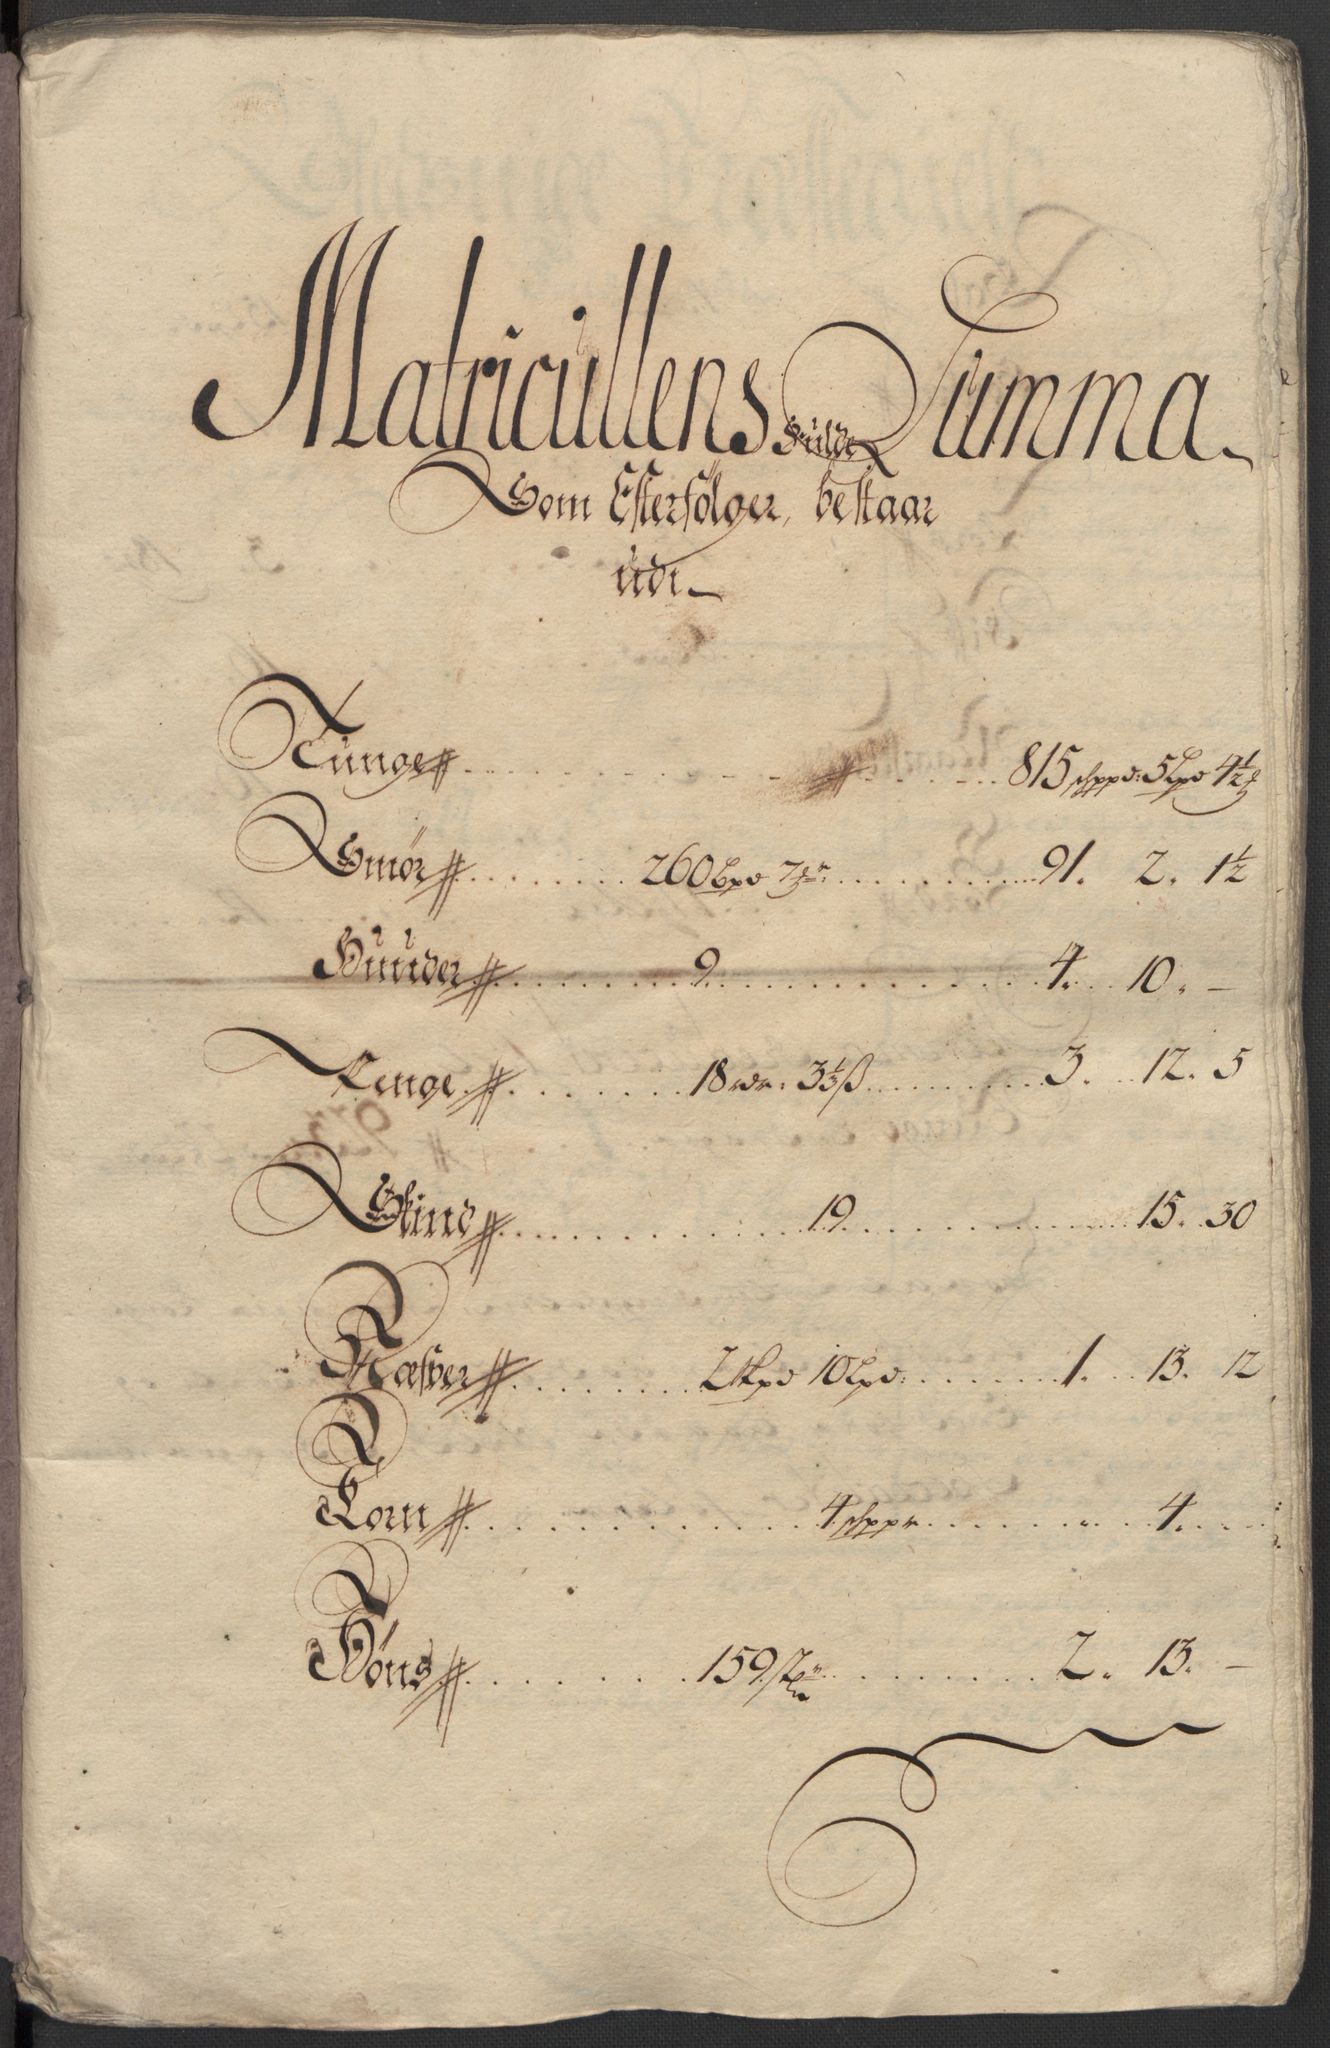 Matricullens Summa
Hulde
Som Efterfölger, bestaar
udi
Tunge 815 schppd: 5 Lpd 4½ ℔
Smör 260 Lpd 7 91. 2. 1½
Huuder 9 4. 10. –
Penge 18 rdr: 3⅓ ß 3. 12. 5
Skind 19 15. 30
Næfver 2 10 Lpd: 1. 13. 12
Korn 4 schppr 4.
Höns 159 2. 13. –